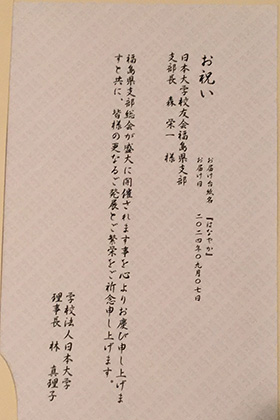 お祝い
お届け台紙名　『はなやか』
お届け日　二〇二四年〇九月〇七日
日本大学校友会福島県支部
支部長　森　栄一　様
福島県支部総会が盛大に開催されます事を心よりお慶び申し上げま
すと共に、皆様の更なるご発展とご繁栄をご祈念申し上げます。
学校法人日本大学
理事長　林　真理子